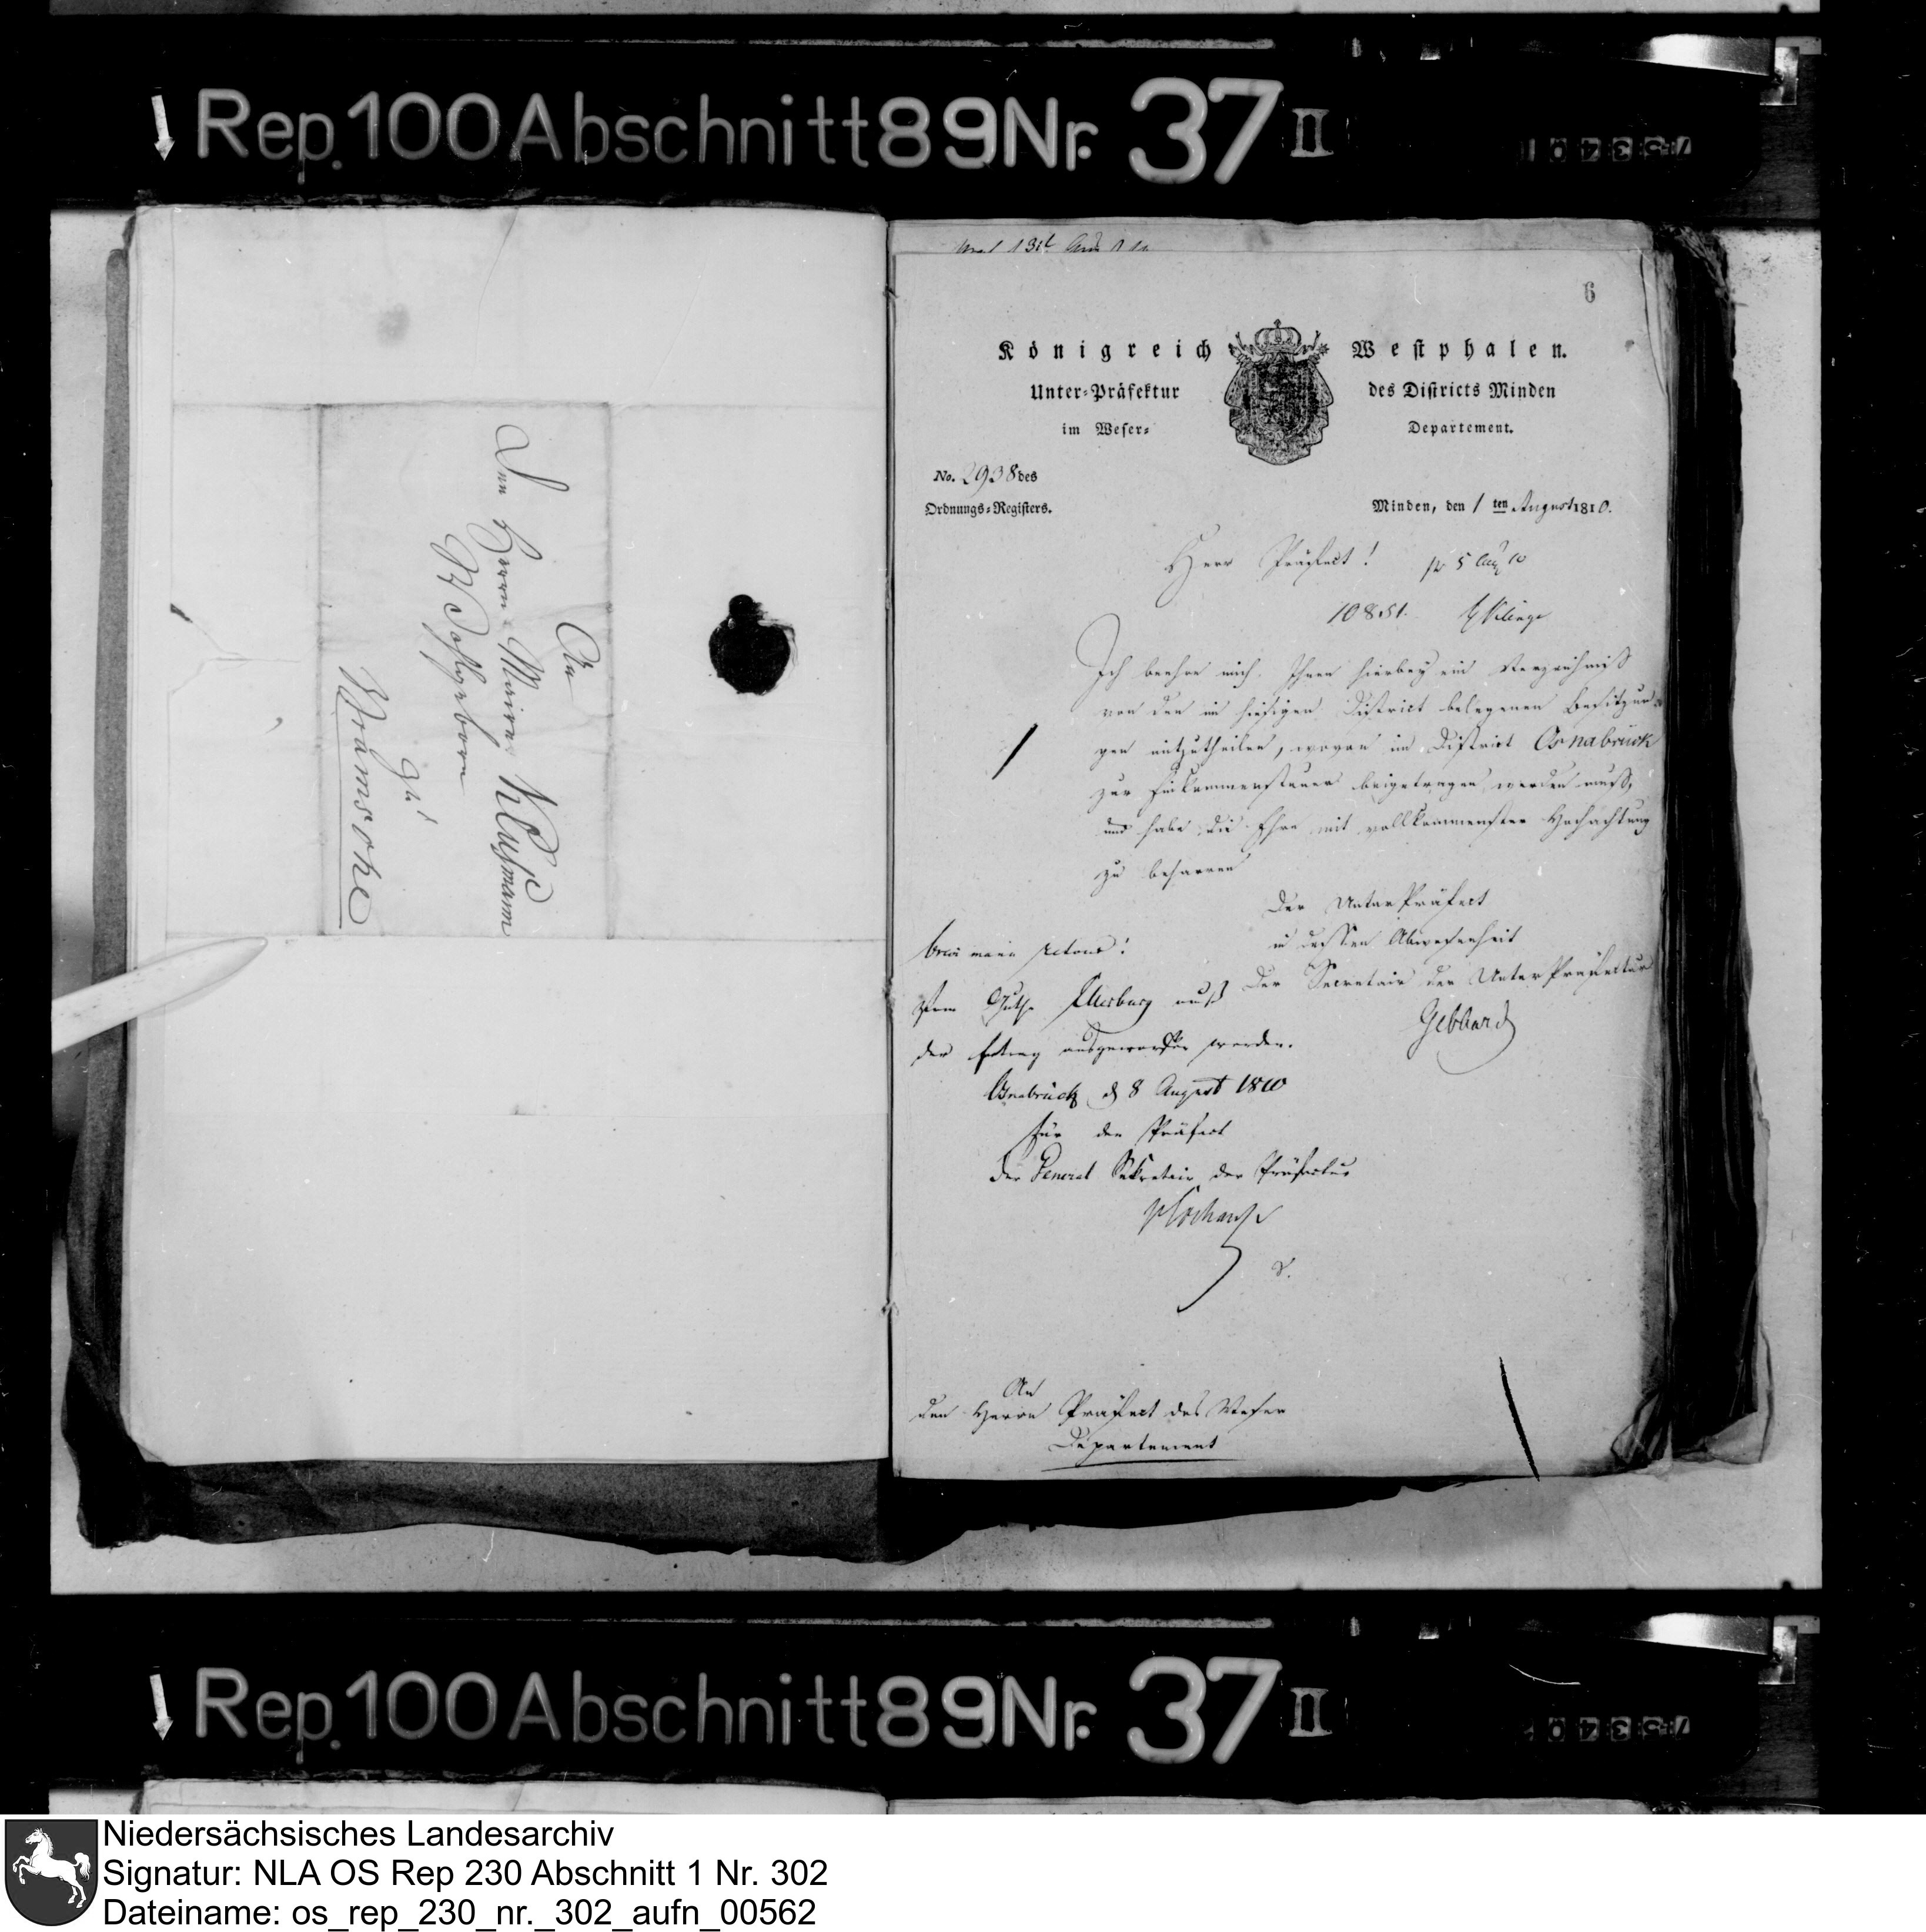 Rep. 100 Abschnitt 89 Nr. 37 II
An
Den Herrn Maire Klusmann
Wohlgeboren
zu
Bramsche
6
Königreich Westphalen.
Unter-Präfektur des Districts Minden
im Weser- Departement.
No. 2938 des
Ordnungs-Registers.
Minden, den 1 ten August 1810.
Herr Präfect! pr 5 Aug 10
10851.
Ich beehre mich Ihnen hierbey ein Verzeichniß
von den im hiesigen District belegenen Besitzun-
gen mitzutheilen, wovon im District Osnabrück
zur Einkommensteuer beigetragen werden muß,
und habe die Ehre mit vollkommenster Hochachtung
zu beharren
Der UnterPräfect
in dessen Abwesenheit
Der Secretair der UnterPräfectur
Gebhard
brevi manu retour!
Vom Guthe muß
der Ertrag ausgeworfen werden.
Osnabrück d 8 August 1810
für den Präfect
Der General Sekretair der Präfectur
An
den Herrn Präfect des Weser
Departement
Rep. 100 Abschnitt 89 Nr. 37 II
Niedersächsisches Landesarchiv
Signatur: NLA OS Rep 230 Abschnitt 1 Nr. 302
Dateiname: os_rep_230_nr._302_aufn_00562